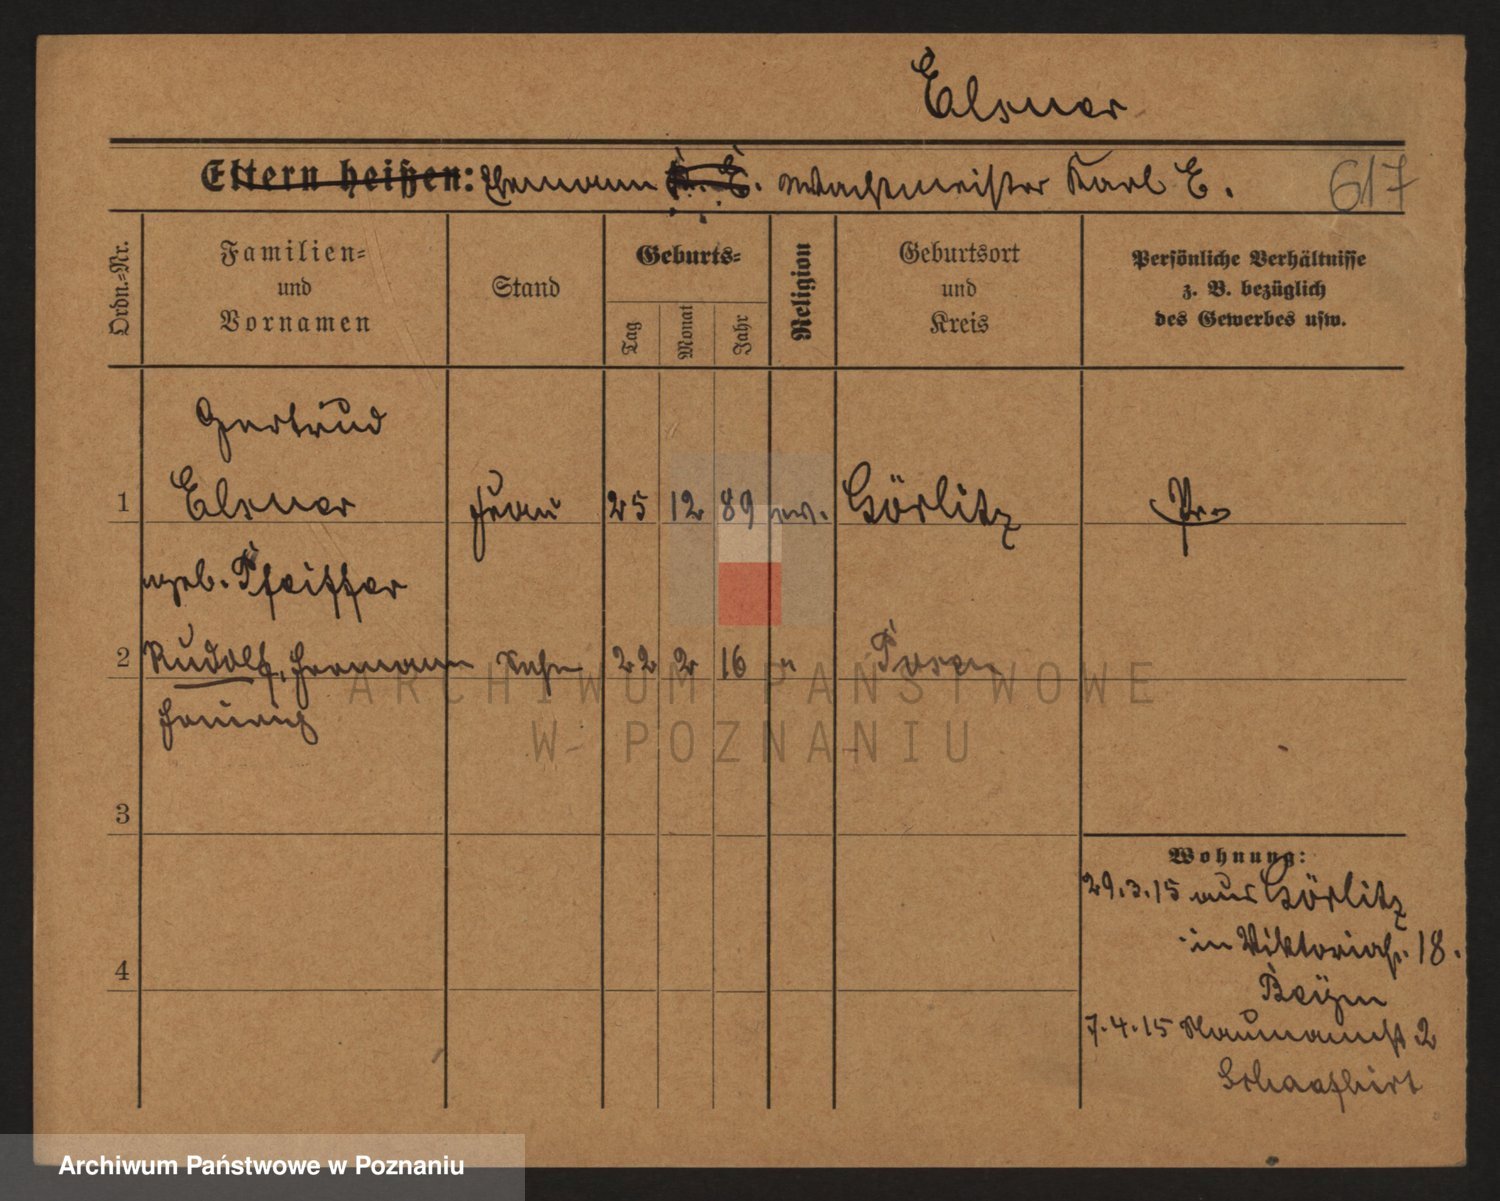 Elsner
Eltern heißen: Ehemann K. E. Wachtmeister Karl E.
617
Ordn.-Nr.
Familien-
und
Vornamen
Stand
Geburts-
Tag
Monat
Jahr
Religion
Geburtsort
und
Kreis
Persönliche Verhältnisse
z. B. bezüglich
des Gewerbes usw.
Gertrud
1 Elsner Frau 25 12 89 ev. Görlitz Pr.
geb. Pfeiffer
2 Rudolf, Hermann Sohn 22 2 16 " Posen
Heinrich
3
4
Wohnung:
29.3.15 aus Görlitz
in Viktoriastr. 18.
7.4.15 Naumannstr 2
ARCHIWUM PAŃSTWOWE
W POZNANIU
Archiwum Państwowe w Poznaniu